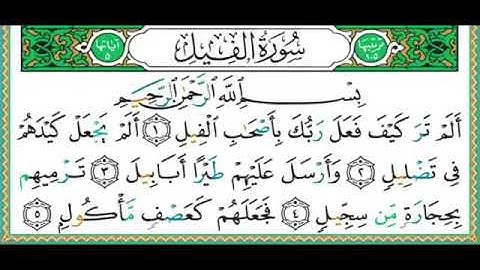 ترتيبها ١٠٥ سُورَةُ الْفِيلِ آياتها ٥
بِسْمِ اللَّهِ الرَّحْمَنِ الرَّحِيمِ
أَلَمْ تَرَ كَيْفَ فَعَلَ رَبُّكَ بِأَصْحَابِ الْفِيلِ ١ أَلَمْ يَجْعَلْ كَيْدَهُمْ
فِي تَضْلِيلٍ ٢ وَأَرْسَلَ عَلَيْهِمْ طَيْرًا أَبَابِيلَ ٣ تَرْمِيهِم
بِحِجَارَةٍ مِّن سِجِّيلٍ ٤ فَجَعَلَهُمْ كَعَصْفٍ مَّأْكُولٍ ٥